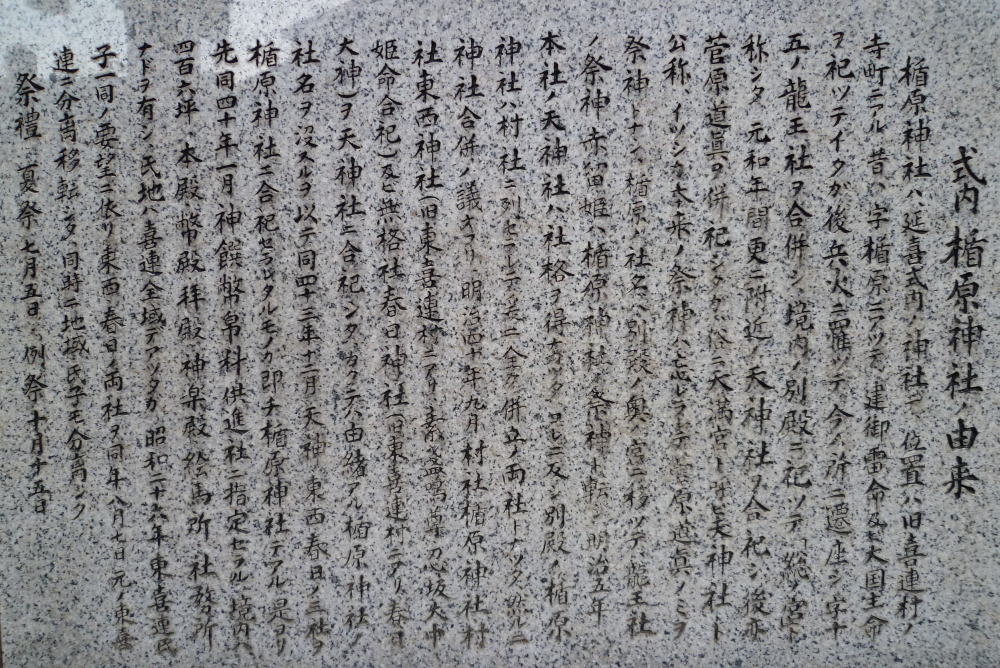 式内楯原神社ノ由来
楯原神社ハ延喜式内ノ神社デ位置ハ旧喜連村ノ
寺町ニアル昔ハ字楯原ニアツテ建御雷命及ビ大国主命
ヲ祀ツテイタガ後兵火ニ罹ツテ今ノ所ニ遷座シ字十
五ノ龍王社ヲ合併シ境内ノ別殿ニ祀ツテ「総宮ト
称シタ元和年間更ニ附近ノ天神社ヲ合祀シ後亦
菅原道眞ヲ併祀シタタメ俗ニ天満宮ト呼ビ天神社ト
公称イツシカ本来ノ祭神ハ忘レラレテ菅原道眞ノミヲ
祭神トナシ楯原ノ社名ハ別殿ノ奥ノ宮ニ移ツテ龍王社
ノ祭神赤留姫ハ楯原神社ノ祭神ト転ジ明治五年
本社ノ天神社ハ社格ヲ得ナカツタコレニ反シ別殿ノ楯原
神社ハ村社ニ列セラレテ茲ニ全ク併立ノ両社トナツタ然ルニ
神社合併ノ議オコリ明治四十年九月村社楯原神社村
社東西神社(旧東喜連村ニアリ素盞嗚尊刀忍坂大中
姫命合祀)及ビ無格社春日神社(旧東喜連村ニアリ春日
大神)ヲ天神社ニ合祀シタカク云ハ由緒アル楯原神社ノ
社名ヲ没スルヲ以テ同四十三年十二月天神東西春日ノ三社ヲ
楯原神社ニ合祀セラレタルモノガ即チ楯原神社デアル是ヨリ
先同四十年一月神饌幣帛料供進社ニ指定セラル境内ハ
四百六坪本殿幣殿拝殿神楽殿絵馬所社務所
ナドヲ有シ氏地ハ喜連全域デアツタガ昭和二十六年東喜連氏
子一同ノ要望ニ依リ東西春日ノ両社ヲ同年八月七日元ノ東喜
連ニ分离移転シタ同時ニ地域氏子モ分离シタ
祭禮夏祭七月五日例祭十月十五日